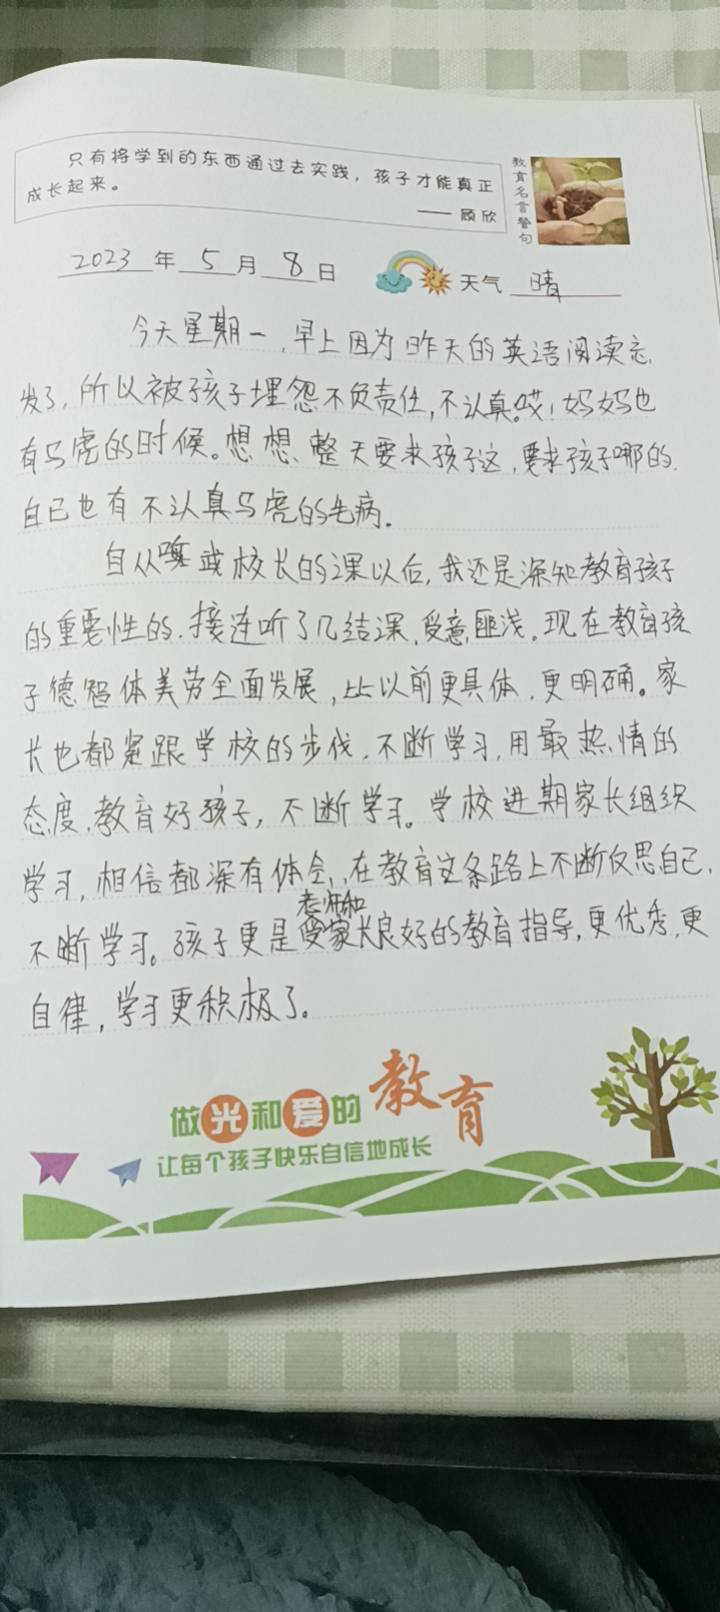 只有将学到的东西通过去实践，孩子才能真正
成长起来。
—— 顾欣
教育名言警句
2023 年 5 月 8 日
天气 晴
今天星期一，早上因为昨天的英语阅读忘
发了，所以被孩子埋怨不负责任，不认真。哎！妈妈也
有马虎的时候。想想、整天要求孩子这，要求孩子哪的.
自己也有不认真马虎的毛病.
自从 校长的课以后，我还是深知教育孩子
的重要性的.接连听了几结课，受意匪浅.现在教育孩
子德智体美劳全面发展，比以前更具体，更明确。家
长也都紧跟学校的步伐，不断学习，用最热情的
态度，教育好孩子，不断学习。学校进期家长组织
学习，相信都深有体会，在教育这条路上不断反思自己，
不断学习。孩子更是受老师和家长良好的教育指导，更优秀，更
自律，学习更积极了。
做光和爱的教育
让每个孩子快乐自信地成长